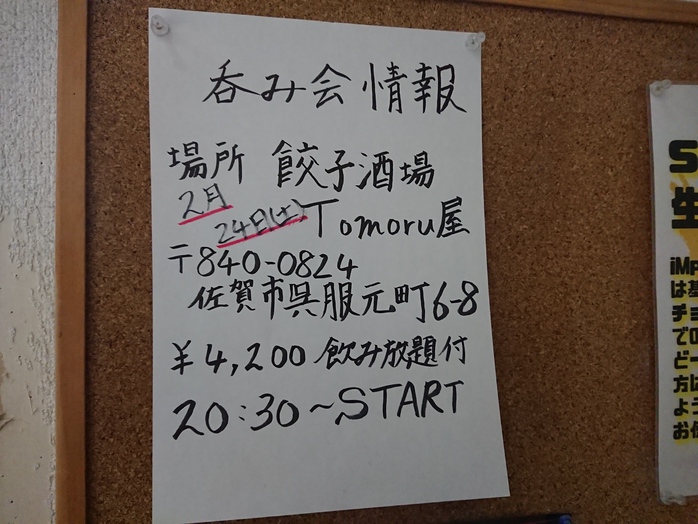 呑み会情報
場所 餃子酒場
2月
24日(土) Tomoru屋
〒840-0824
佐賀市呉服元町6-8
¥4,200 飲み放題付
20:30~START
S
生
iMp
は基
チョ
での
ど一
方は
よう
お休